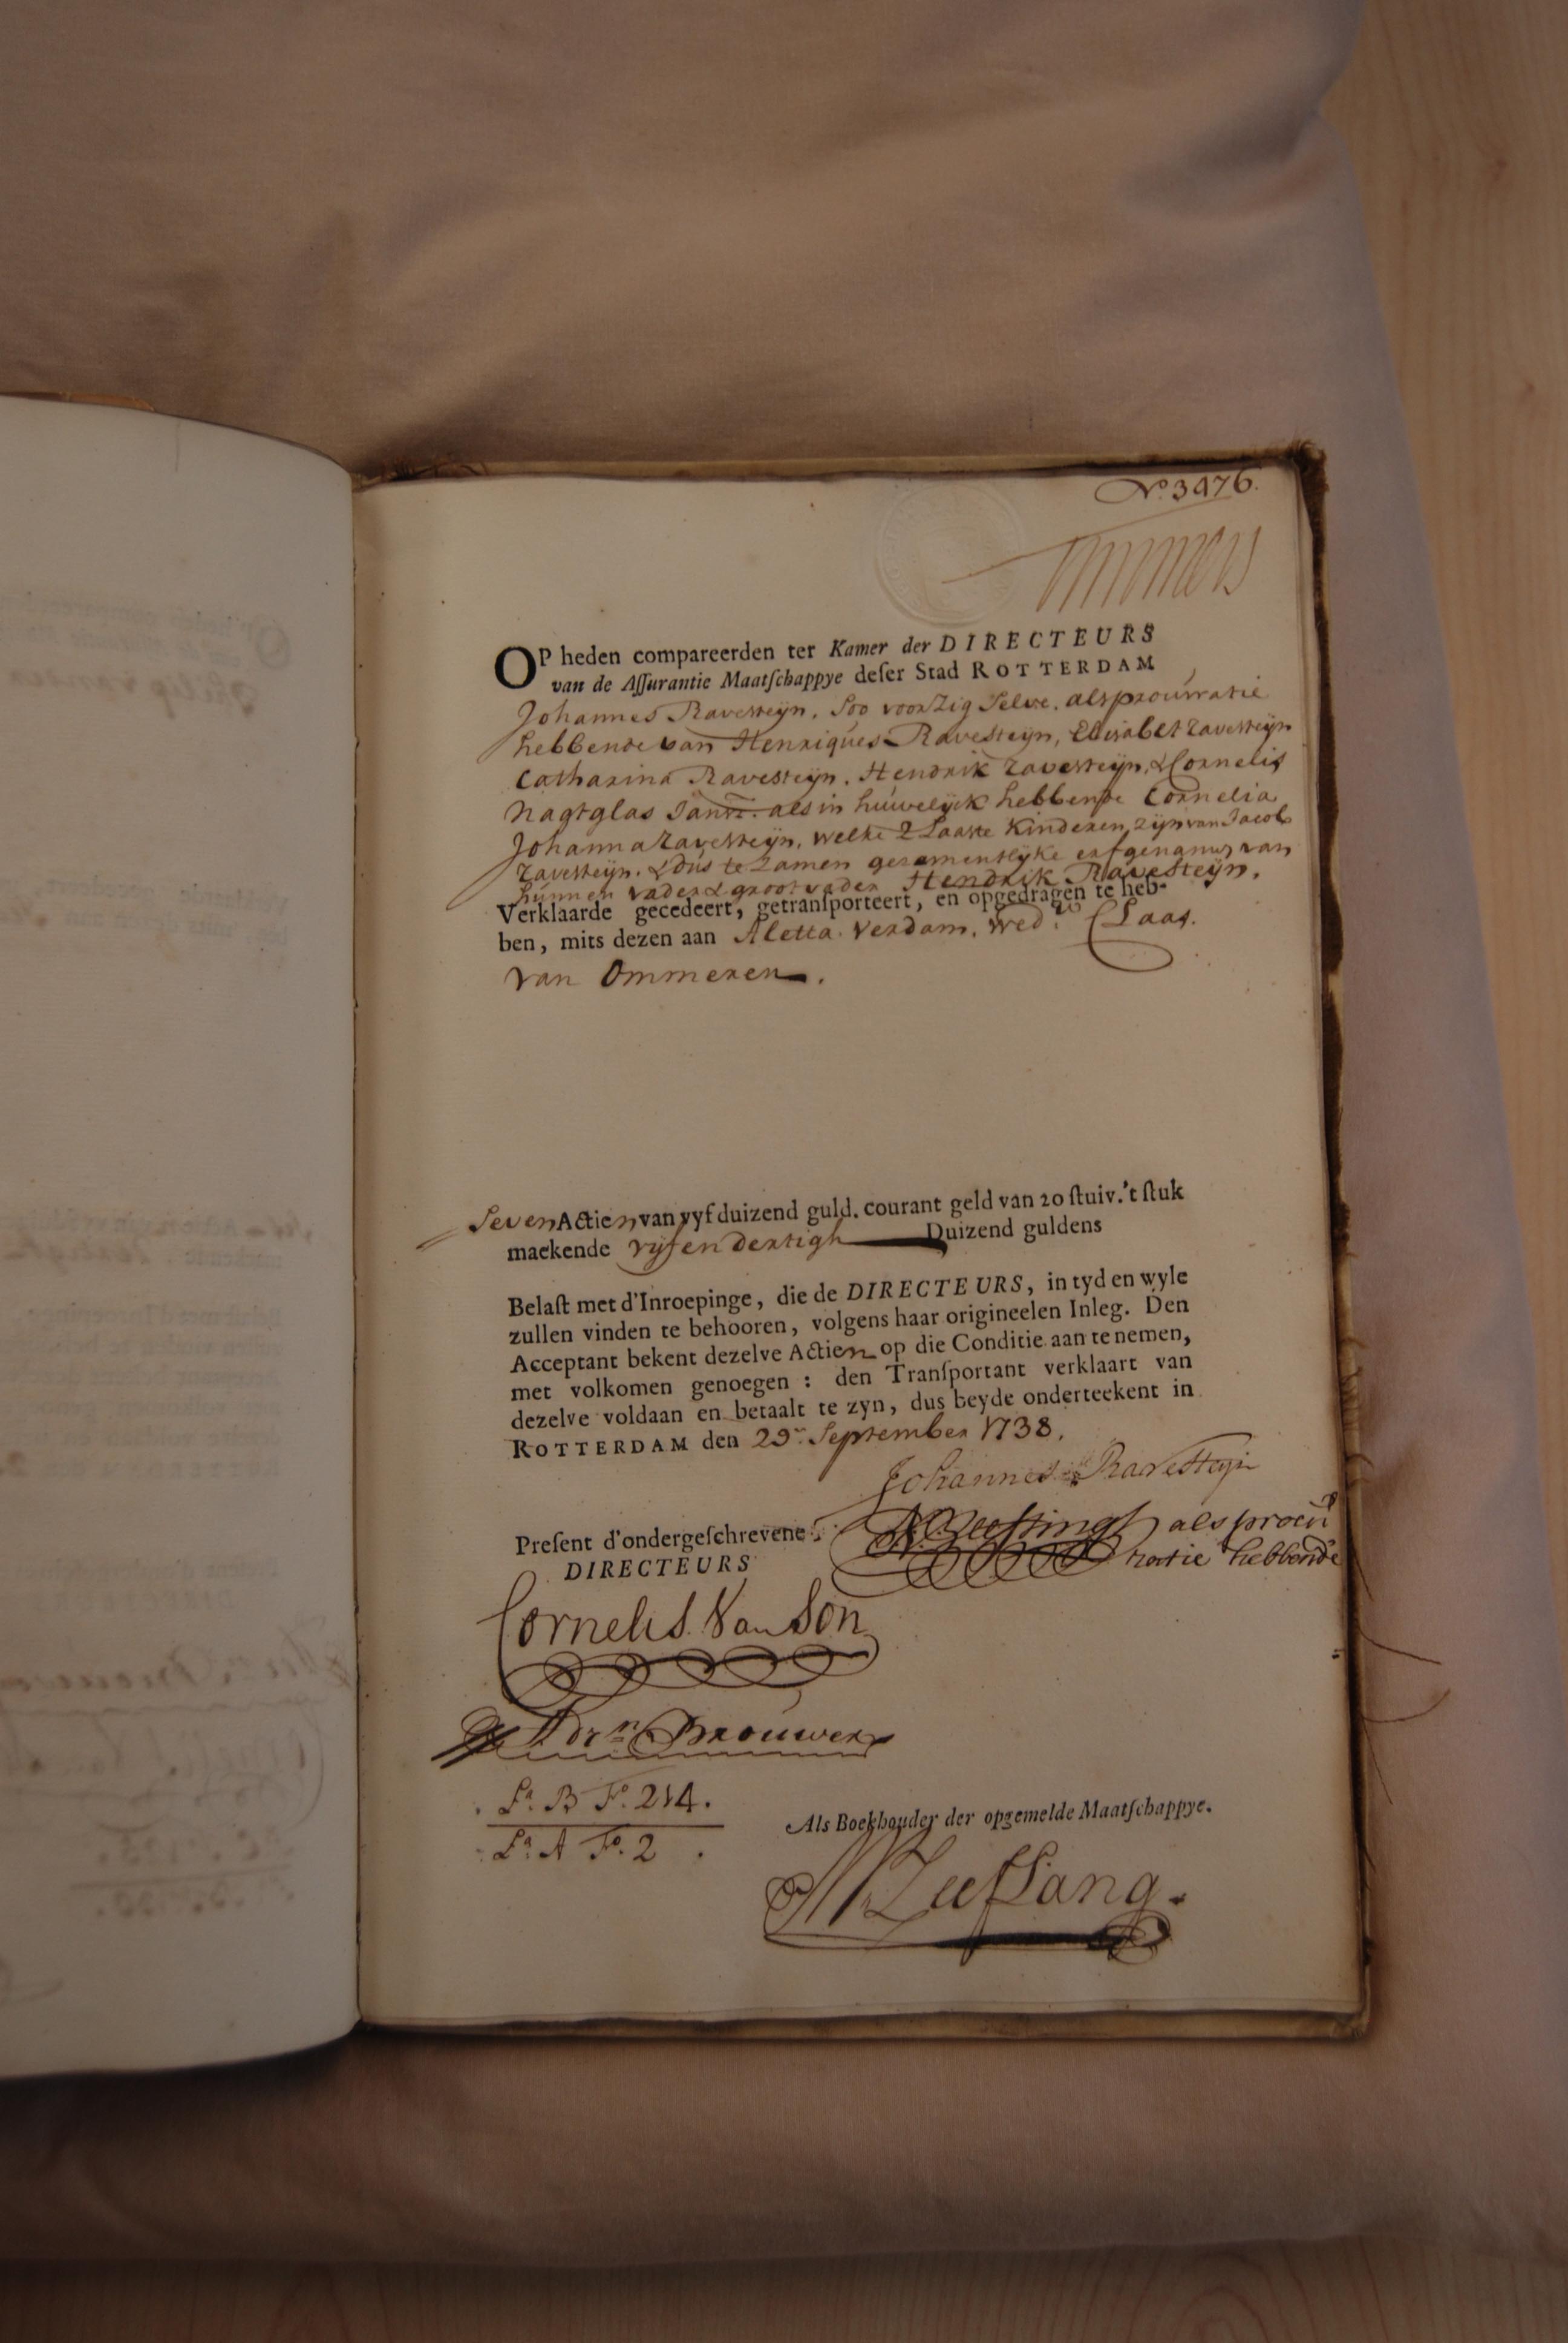 No. 3476.
OP heden compareerden ter Kamer der DIRECTEURS
van de Aſſurantie Maatſchappye deſer Stad ROTTERDAM
Johannes Ravesteijn, Soo voor Zig Selve, als procúratie
hebbende van Henriqúes Ravesteijn, Elisabet Ravesteijn
Catharina Ravesteijn, Hendrik Ravesteijn, & Cornelis
Nagtglas Jansz. als in húwelijck hebbende Cornelia
Johanna Ravesteijn, welke 2 Laaste Kinderen zijn van Jacob
Ravesteijn, & dús te zamen gesamentlijke erfgenamen van
húnnen vader & grootvader Hendrik Ravesteijn,
Verklaarde gecedeert, getranſporteert, en opgedragen te heb-
ben, mits dezen aan Aletta Verdam, Wed.w Claas
van Ommeren.
Seven Actien van vyf duizend guld. courant geld van 20 ſtuiv. 't ſtuk
maekende vijf en dertigh Duizend guldens
Belaſt met d'Inroepinge, die de DIRECTEURS, in tyd en wyle
zullen vinden te behooren, volgens haar origineelen Inleg. Den
Acceptant bekent dezelve Actien op die Conditie aan te nemen,
met volkomen genoegen : den Tranſportant verklaart van
dezelve voldaan en betaalt te zyn, dus beyde onderteekent in
ROTTERDAM den 29n September 1738.
Johannes Ravesteyn
als procú
Preſent d'ondergeſchrevene
ratie hebbende
DIRECTEURS
Cornelis Van Son
Adrn Broúwer
La. B Fo. 214.
La. A Fo. 2.
Als Boekhouder der opgemelde Maatſchappye.